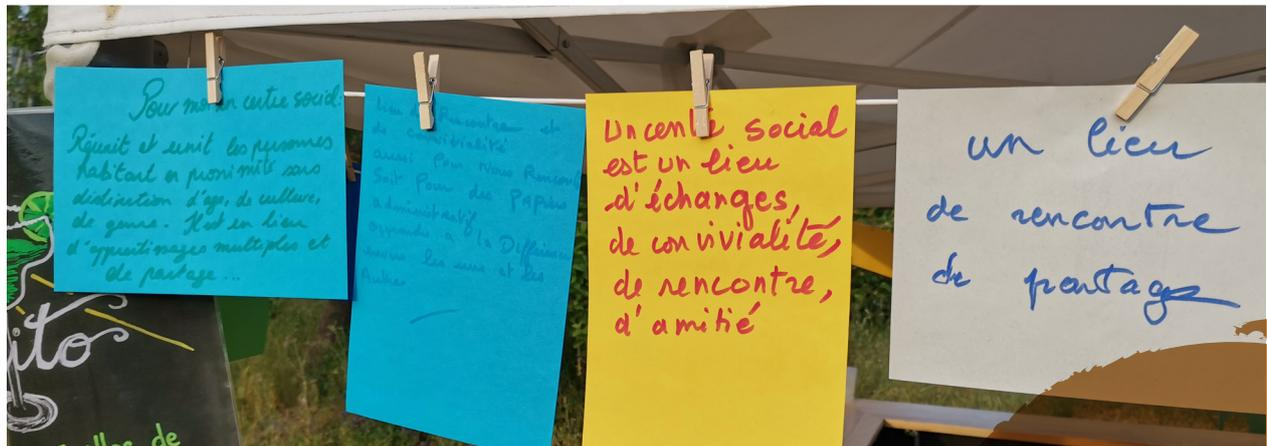 Pour moi un centre social:
Réunit et unit les personnes
habitant en proximité sans
distinction d'age, de culture,
de genre. Il est un lieu
d'apprentissages multiples et
de partage...
lieu de Rencontre et
de convivialité
aussi pour Nous Rencon
soit Pour des Papiers
administratif
apprendre a la Différence
les uns et les
Autres
Un centre social
est un lieu
d'échanges,
de convivialité,
de rencontre,
d'amitié
un lieu
de rencontre
de partage
ito
de